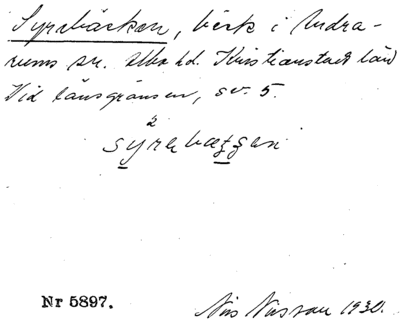 Syrabäcken, bäck i Andra-
rums sn. Albo hd. Kristianstads län
Vid länsgränsen, sv. 5.
2
Nr 5897.
Nils Nilsson 1930.